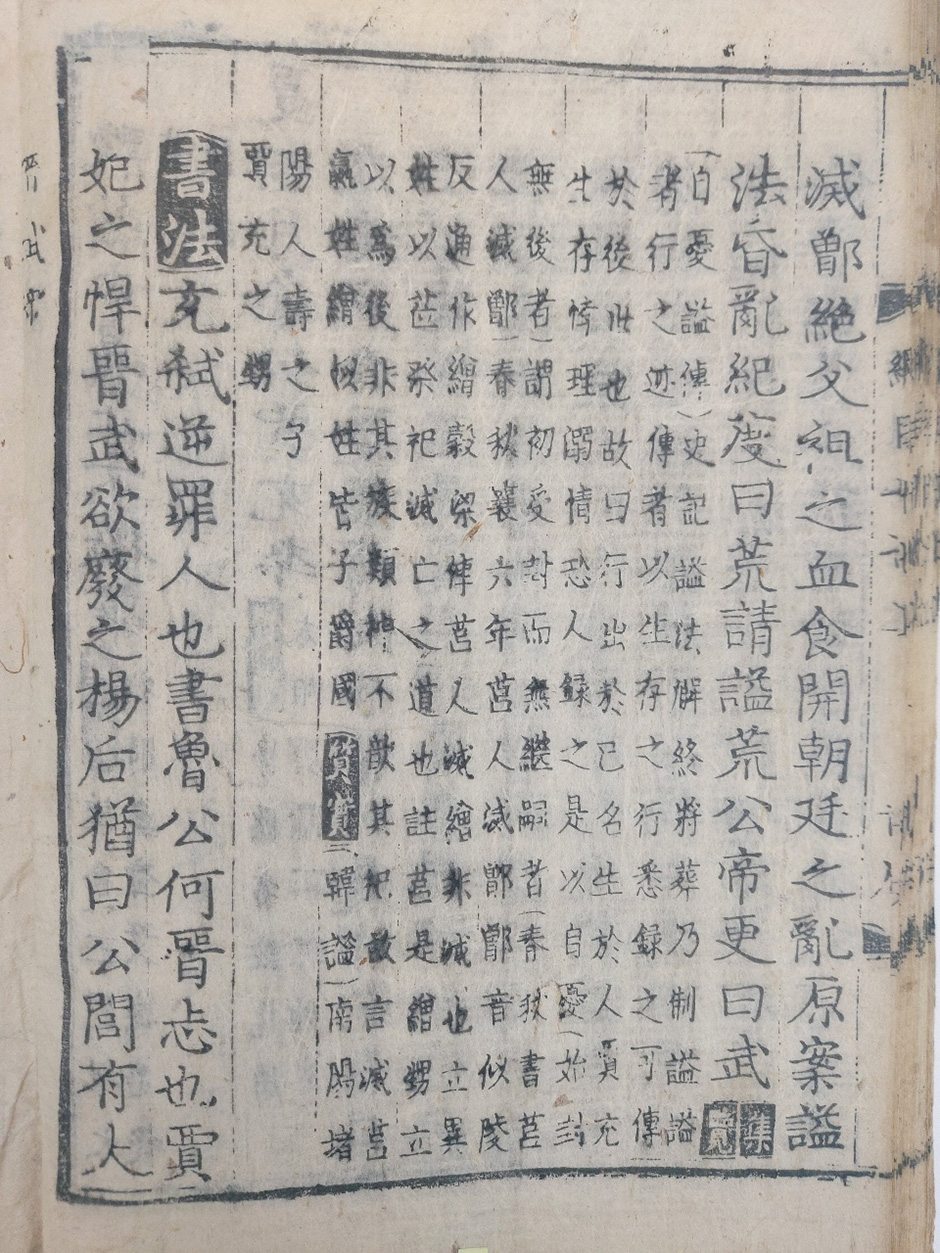 滅鄫絶父祖之血食開朝廷之亂原案謚
法昏亂紀度曰荒請謚荒公帝更曰武集覽
自憂謚傳史記謚法解終將葬乃制謚謚
者行之迹傳者以生存之行悉録之可傳
於後世也故曰行出於己名生於人賈充
生存悖理溺情恐人録之是以自憂始封
無後者謂初受封而無繼嗣者春秋書莒
人滅鄫春秋襄六年莒人滅鄫鄫音似陵
反通作繒穀梁傳莒人滅繒非滅也立異
姓以莅祭祀滅亡之道也註莒是繒甥立
以爲後非其族類神不歆其祀故言滅莒
嬴姓繒姒姓皆子爵國質實韓謐南陽堵
陽人壽之子
賈充之甥
書法充弑逆罪人也書魯公何晉志也賈
妃之悍晉武欲廢之楊后猶曰公閭有大
晋武帝